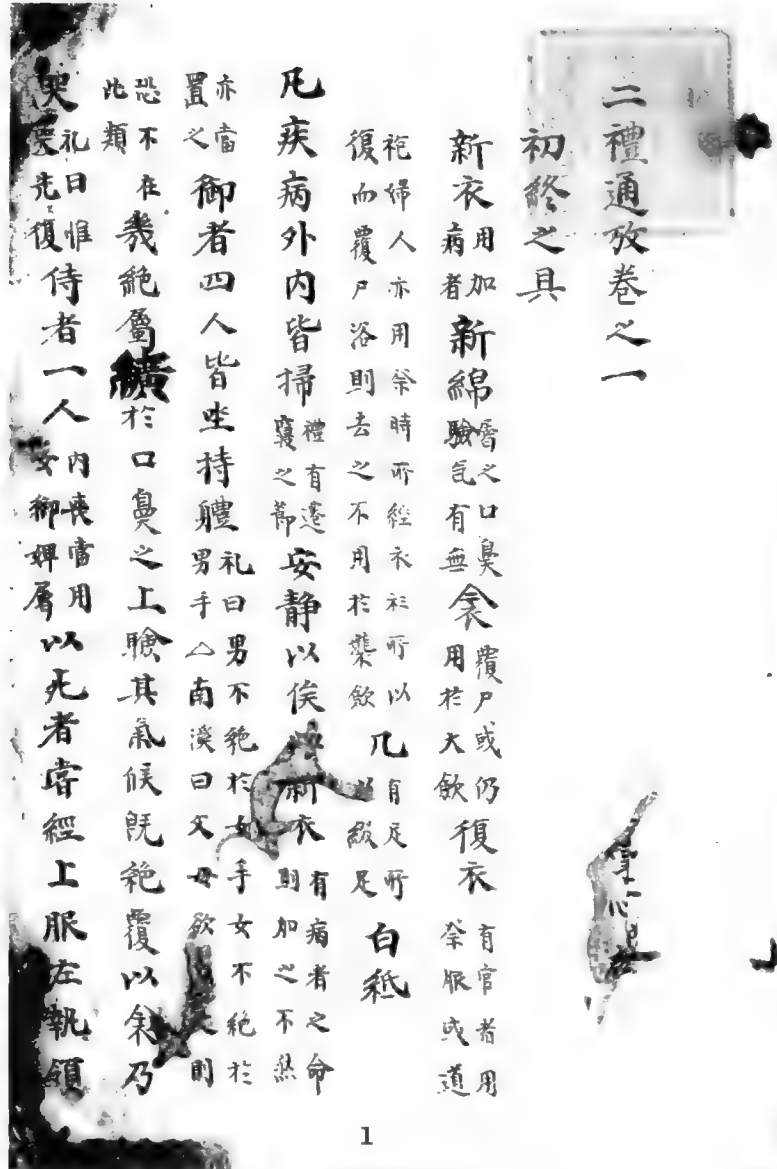 二禮通攷卷之一
初終之具
新衣用加病者新綿屑之口鼻驗気有無衾覆尸或仍用於大斂復衣有官者用祭服或道
袍婦人亦用祭時所經衣衫所以復而覆尸浴則去之不用於襲斂几有足所以綴足白紙
凡疾病外內皆掃禮有遷寢之節安静以俟新衣有病者之命則加之不然
亦當置之御者四人皆坐持軆礼曰男不絶於女手女不絶於男手△南溪曰父母欲則
恐不在此類幾絶屬纊於口鼻之上驗其氣候旣絶覆以衾乃
哭礼曰惟哭先復侍者一人內喪當用女御婢屬以死者嘗經上服左執領
1